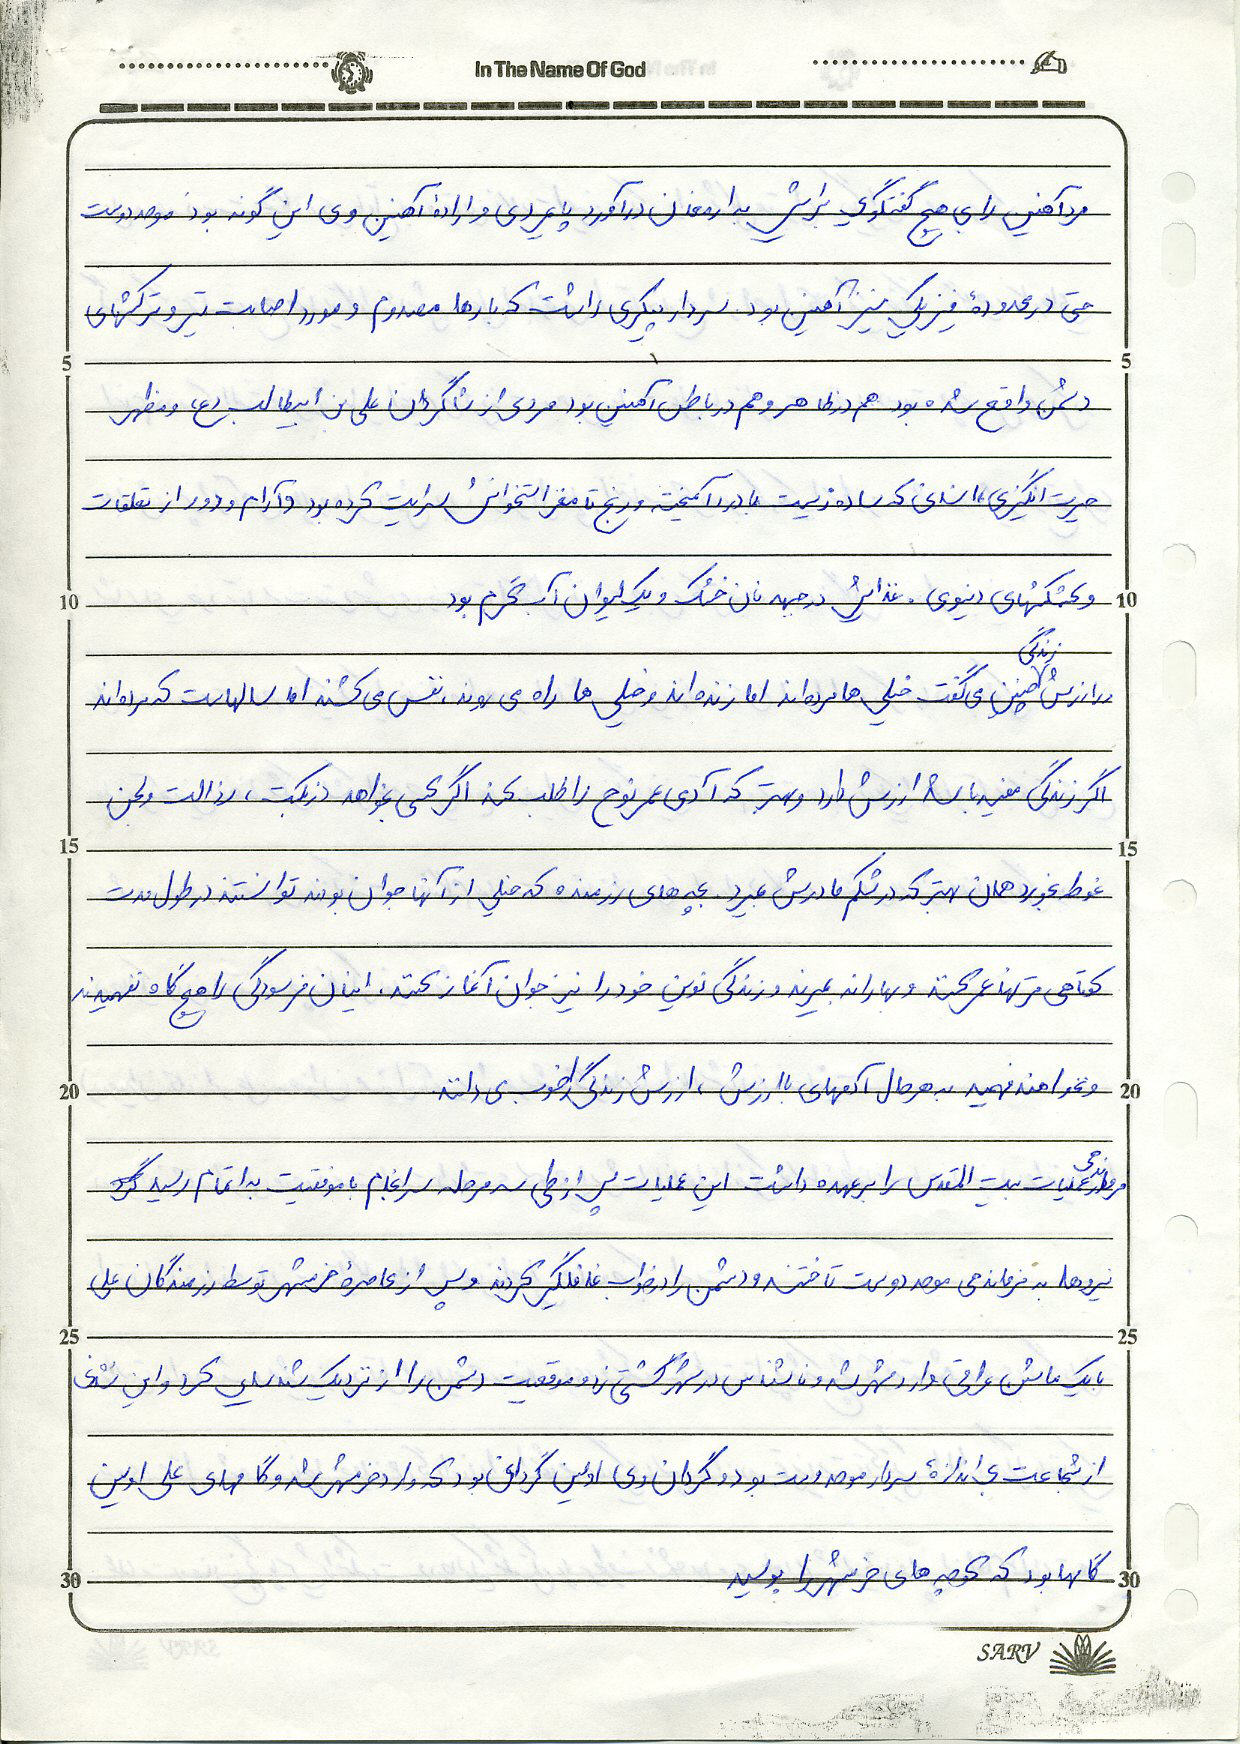 In The Name Of God
مرد آهنین را بی هیچ گفتگوی برایش به ارمغان درآورد پایمردی و ارادهٔ آهنین وی این گونه بود موحد دوست
حتی در محدودهٔ فیزیکی نیز آهنین بود. سردار پیکری داشت که بارها مصدوم و مورد اصابت تیر و ترکشهای
5 دشمن واقع شده بود هم در ظاهر و هم در باطن آهنین بود مردی از شاگردان علی بن ابیطالب (ع) و مظهر
حیرت انگیزی انسانی که ساده زیست با درد آمیخته و رنج تا مغز استخوانش سرایت کرده بود و آرام و دور از تعلقات
10 و کشکشهای دنیوی . غذایش در جبهه نان خشک و یک لیوان آب گرم بود
در ارزش زندگی چنین می گفت خیلی ها مرده اند اما زنده اند و خیلی ها راه می روند، نفس می کشند اما سالهاست که مرده اند
اگر زندگی مفید باشد ارزش دارد و بهتر که آدمی عمر نوح را طلب کند اگر کسی بخواهد در نکبت ، رذالت و لجن
15 غوطه بخورد همان بهتر که در شکم مادرش بمیرد. بچه های رزمنده که خیلی از آنها جوان بودند توانستند در طول مدت
کوتاهی قرنها عمر کنند و بهارانه بمیرند و زندگی نوین خود را نیز جوان آغاز کنند. اینان فرسودگی را هیچ گاه نفهمیدند
20 و نخواهند فهمید به هر حال آدمهای با ارزش ، ارزش زندگی را خوب می دانند.
فرماندهی عملیات بیت المقدس را بر عهده داشت این عملیات پس از طی سه مرحله سرانجام با موفقیت به اتمام رسید
نیروها به فرماندهی موحد دوست تاختند و دشمن را در خواب غافلگیر کردند و پس از محاصرهٔ خرمشهر توسط رزمندگان علی
25 با یک ماشین عراقی وارد شهر شد و ناشناس در شهر گشتی زد و موقعیت دشمن را از نزدیک شناسایی کرد و این
از شجاعت بی اندازهٔ سردار موحد دوست بود و گردان وی اولین گردانی بود که وارد خرمشهر شد و گامهای علی اولین
30 گامها بود که کوچه های خرمشهر را بوسید
SARV